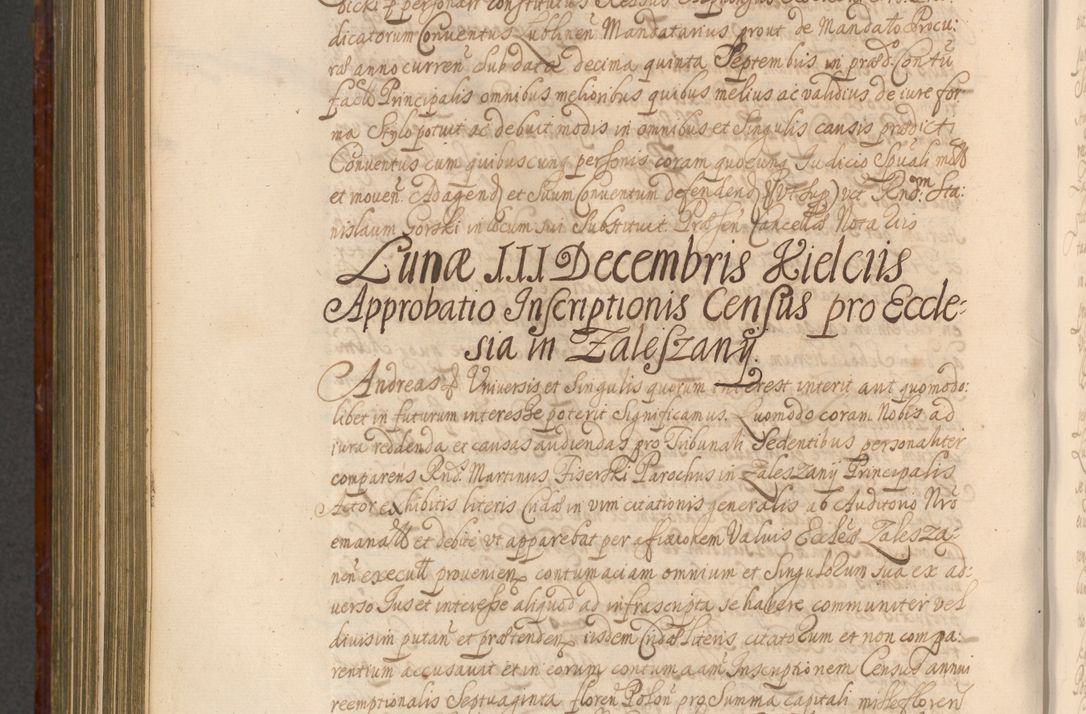 dicatorum Conventus Lublinen Mandatarius prout de Mandato Procu:
ra anno curren sub data decima quinta Septembris in præd. Contu
facto Principalis omnibus melioribus quibus melius ac validius de iure for
ma stylo potuit ac debuit modis in omnibus et singulis causis prædicti
Conventus cum quibuscunq personis coram quocunq Iudicio Spuali
et moven. Ad agend et suum Conventum defendend ut Rndm. Sta:
nislaum Gorski in locum sui substituit. Præsen Cancello Notariis
Lunæ III Decembris Kielciis
Approbatio Inscriptionis Census pro Eccle-
sia in Zaleszany.
Andreas & Universis et singulis quorum interest interit aut quomodo:
libet in futurum interesse poterit significamus. Quomodo coram Nobis ad
iura reddenda et causas audiendas pro Tribunali Sedentibus personaliter
comparens Rnds. Martinus Fiserski Parochus in Zaleszany Principalis
Actor exhibitis literis Cridæ in vim citationis generalis ab Auditorio Nro
emanatt et debite ut apparebat per affixionem Valuis Eccles Zalesza:
nen execult provenien contumaciam omnium et singulorum sua ex ad:
verso Ius et interesse aliquod ad infrascripta se habere communiter vel
divisim putan et prætenden iisdem Cridæ literis citatorum et non compa:
rentium accusavit et in eorum contumaciam Inscriptionem Census annui
reemptionalis Septuaginta floren Polon pro Summa capitali mille floren